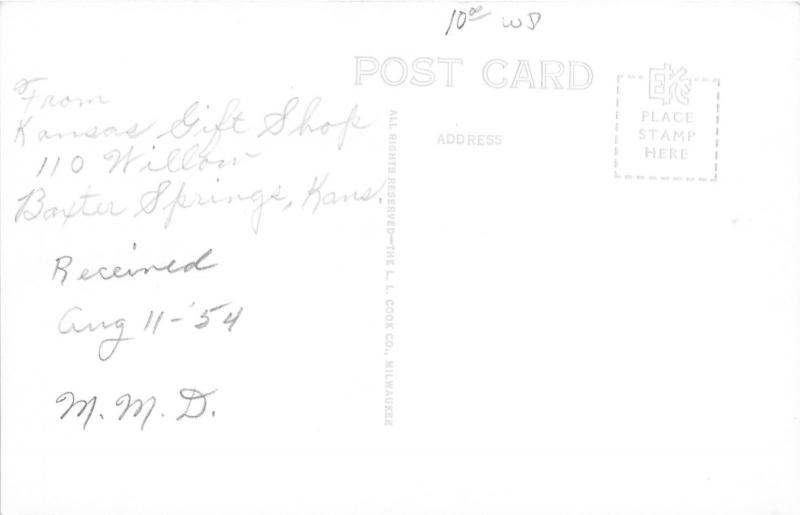 10.00 WS
POST CARD
From
Kansas Gift Shop
110 Willow
Baxter Springs, Kans.
Received
Aug 11-'54
M. M. D.
ALL RIGHTS RESERVED—THE L. L. COOK CO., MILWAUKEE
ADDRESS
EKC
PLACE
STAMP
HERE